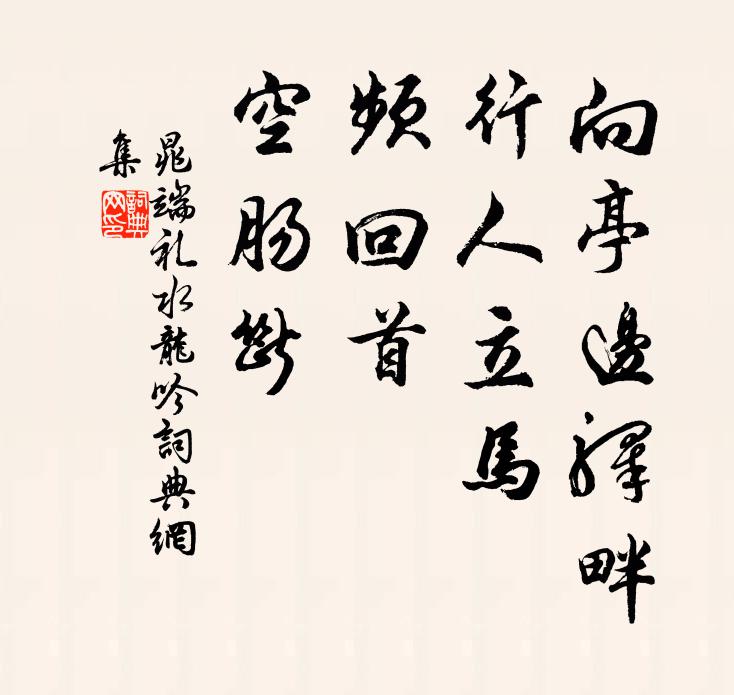 向亭邊驛畔
行人立馬
頻回首
空腸斷
晁端礼水龍吟詞典網
集
詞典
网印